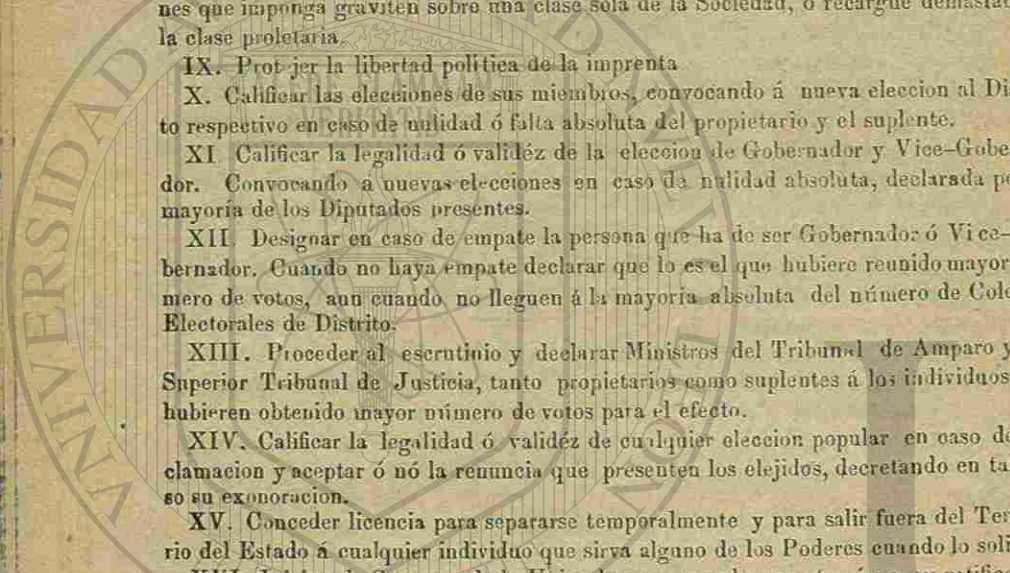 nes que imponga graviten sobre una clase sola de la Sociedad, ó recargue demasiad
la clase proletaria.
IX. Prot jer la libertad politica de la imprenta
X. Calificar las elecciones de sus miembros, convocando á nueva eleccion al Di
to respectivo en caso de nulidad ó falta absoluta del propietario y el suplente.
XI Calificar la legalidad ó validéz de la eleccion de Gobernador y Vice-Gobe
dor. Convocando a nuevas elecciones en caso de nulidad absoluta, declarada po
mayoría de los Diputados presentes.
XII. Designar en caso de empate la persona que ha de ser Gobernador ó Vice-
bernador. Cuando no haya empate declarar que lo es el que hubiere reunido mayor
mero de votos, aun cuando no lleguen á la mayoría absoluta del número de Cole
Electorales de Distrito.
XIII. Proceder al escrutinio y declarar Ministros del Tribunal de Amparo y
Superior Tribunal de Justicia, tanto propietarios como suplentes á los individuos
hubieren obtenido mayor número de votos para el efecto.
XIV. Calificar la legalidad ó validéz de cualquier eleccion popular en caso de
clamacion y aceptar ó nó la renuncia que presenten los elejidos, decretando en ta
so su exonoracion.
XV. Conceder licencia para separarse temporalmente y para salir fuera del Ter
rio del Estado á cualquier individuo que sirva alguno de los Poderes cuando lo soli
UNIVERSIDAD